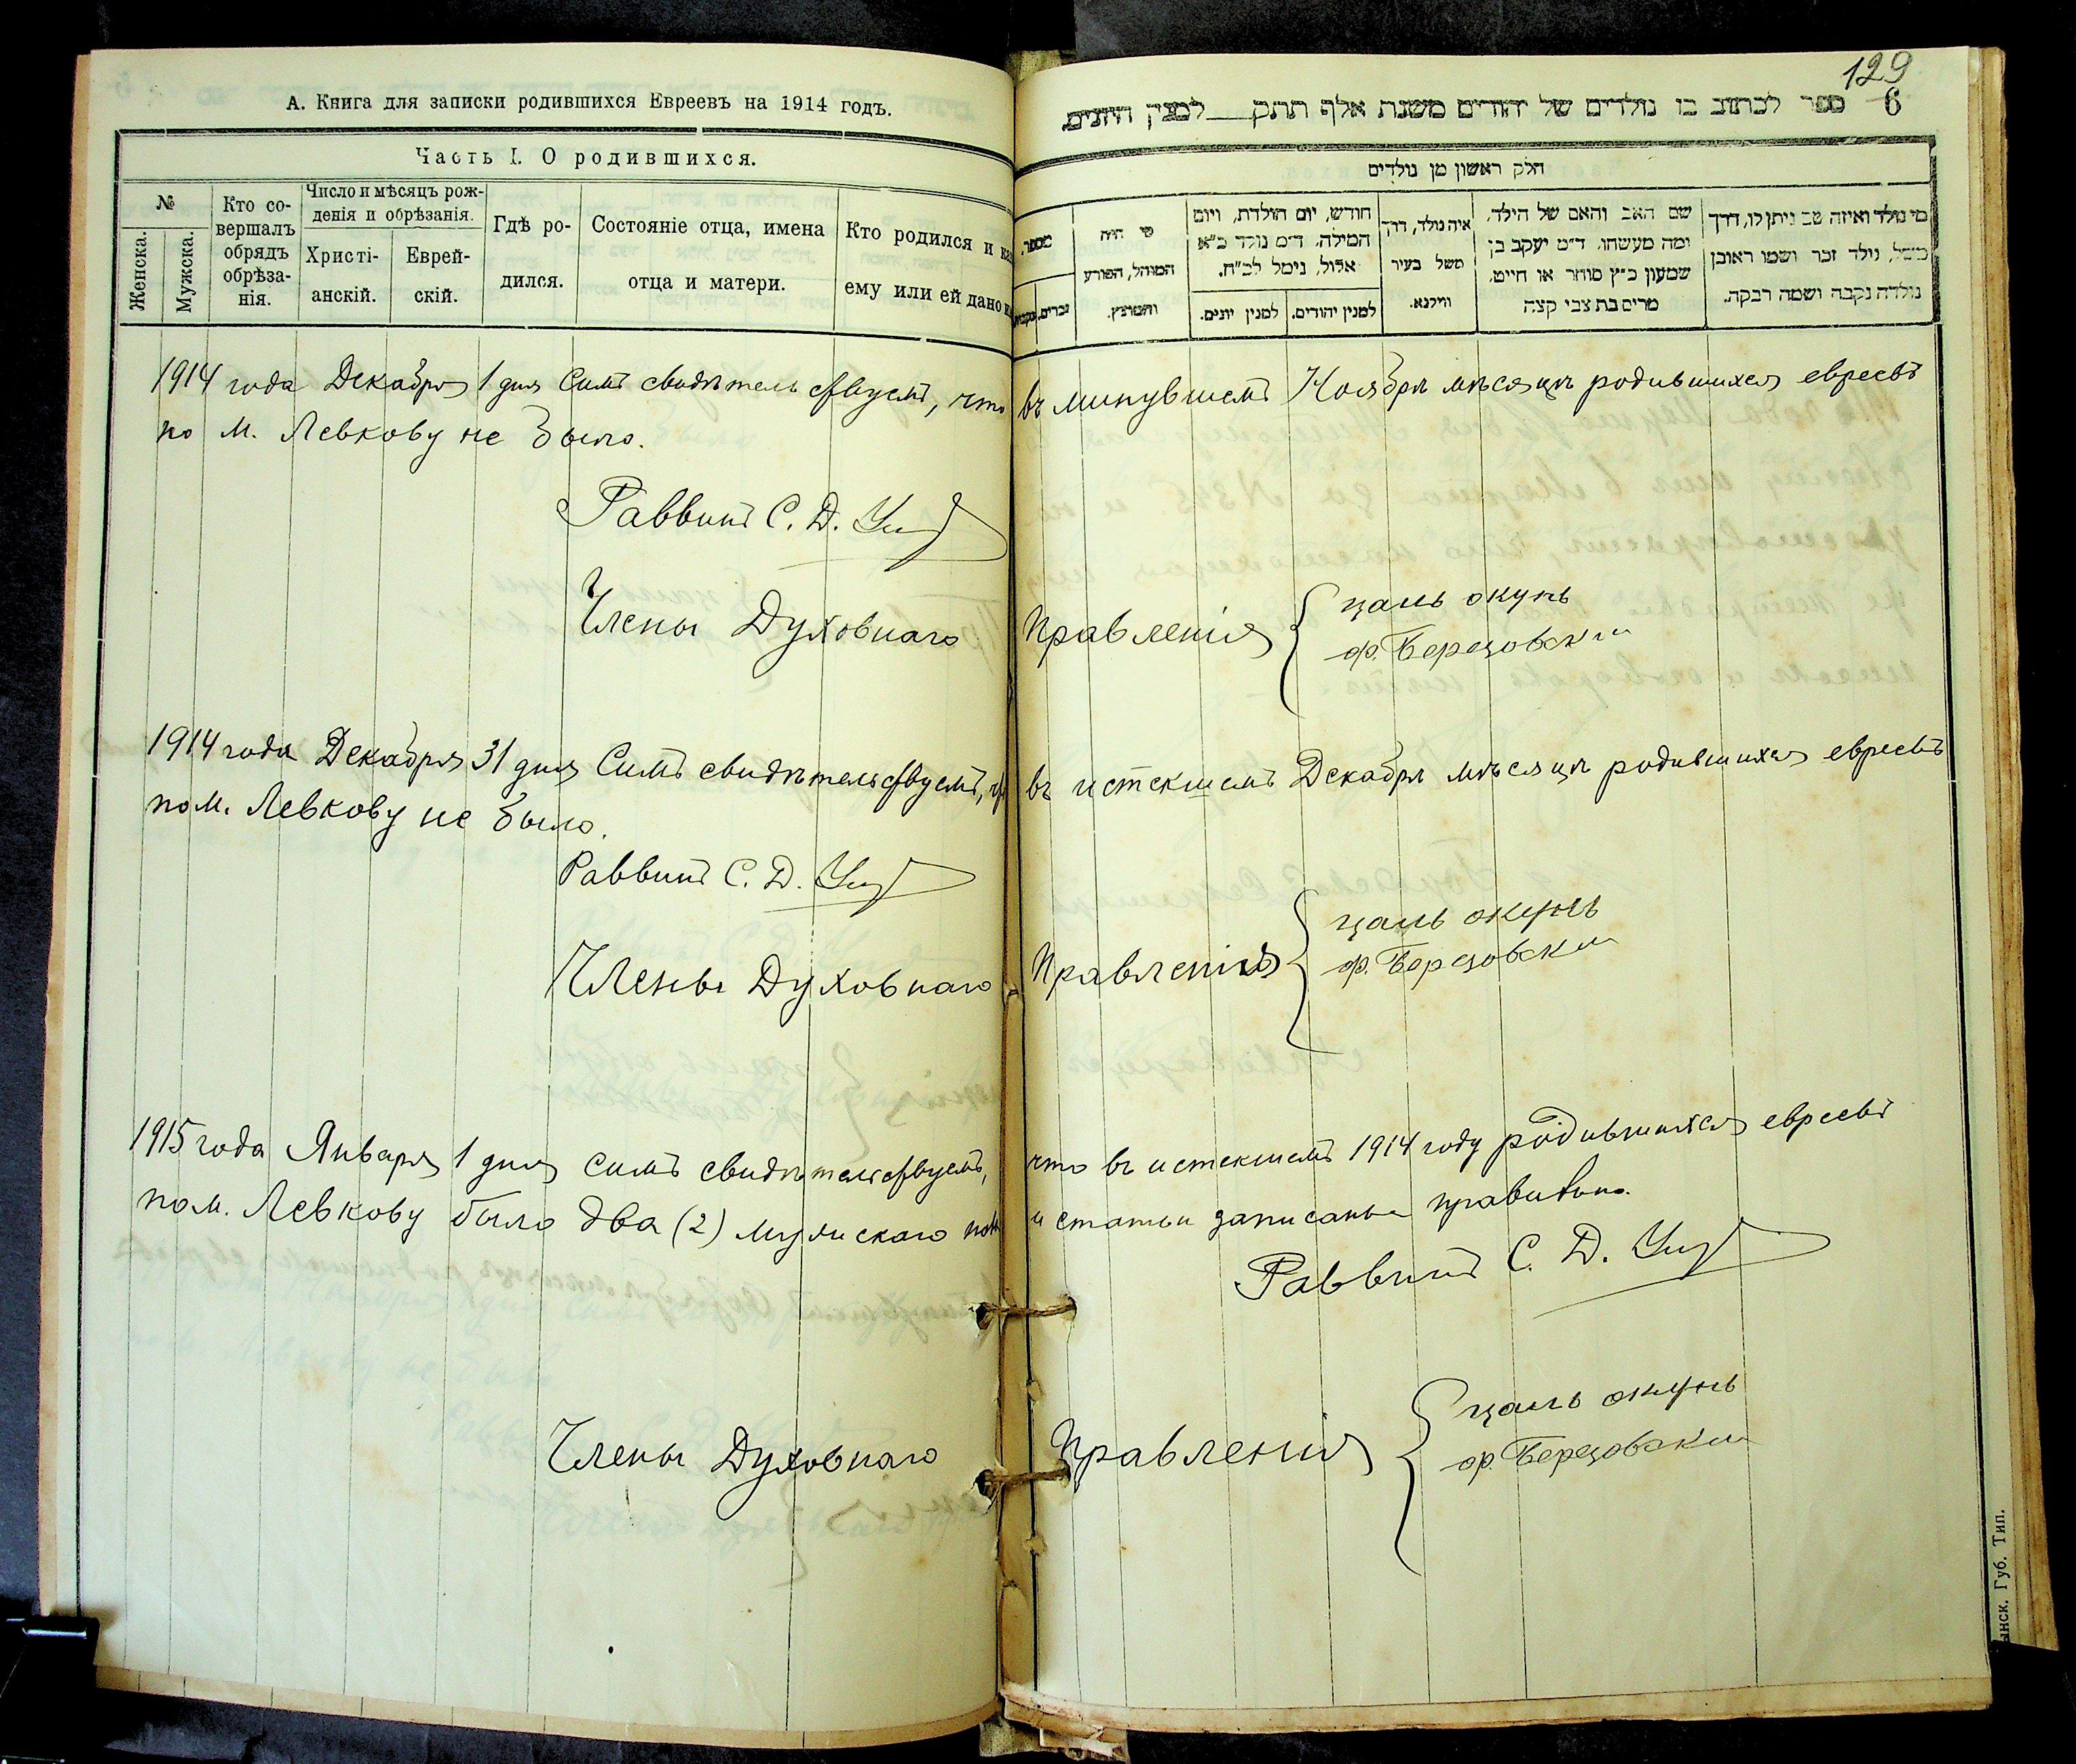 А. Книга для записки родившихся Евреевъ на 1914 годъ.
Часть I. О родившихся.
№
Женска.
Мужска.
Кто со-
вершалъ
обрядъ
обрѣза-
нія.
Число и мѣсяцъ рож-
денія и обрѣзанія.
Христі-
анскій.
Еврей-
скій.
Гдѣ ро-
дился.
Состояніе отца, имена
отца и матери.
Кто родился и
ему или ей дано
129
6
ספר לכתוב בו נולדים של יהודים משנת אלף תתק___למנין היונים
חלק ראשון מן נולדים
מי נולד ואיזה שם ניתן לו, דרך
משל, נולד זכר ושמו ראובן
נולדה נקבה ושמה רבקה.
שם האב והאם של הילד,
ומה מעשהו, ד״מ יעקב בן
שמעון כ״ץ סוחר או חייט,
מרים בת צבי קצה
איה נולד, דרך
משל בעיר
ווילנא.
חודש, יום הולדת, ויום
המילה, ד״מ נולד כ״א
אלול, נימל לכ״ח.
למנין יהודים.
למנין יונים.
מי היה
המוהל, הפורע
והמוצץ.
מספר,
זכרים,
1914 года Декабря 1 дня Симъ свидѣтельствуемъ, что въ минувшемъ Ноябрѣ мѣсяцѣ родившихся евреевъ
по м. Левкову не было.
Раввинъ С. Д.
Члены Духовнаго Правленія
цаль окунь
фр. Березовский
1914 года Декабря 31 дня Симъ свидѣтельствуемъ, что въ истекшемъ Декабрѣ мѣсяцѣ родившихся евреевъ
по м. Левкову не было.
Раввинъ С. Д.
Члены Духовнаго Правленія
цаль окунь
фр. Березовский
1915 года Января 1 дня симъ свидѣтельствуемъ, что въ истекшемъ 1914 году родившихся евреевъ
по м. Левкову было два (2) мужскаго пола и статьи записаны правильно.
Раввинъ С. Д.
Члены Духовнаго Правленія
цаль окунь
фр. Березовский
Губ. Тип.